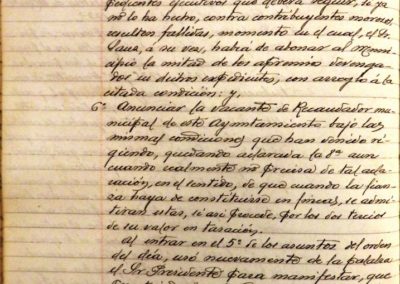 pedientes ejecutivos que deberá seguir, si ya
no lo ha hecho, contra contribuyentes morosos
resulten fallidas, momento en el cual, el Sr.
Saus, á su vez, habrá de abonar al Muni-
cipio la mitad de los apremios devenga-
dos en dichos expedientes, con arreglo á la
citada condición; y,
6º Anunciar la vacante de Recaudador mu-
nicipal de este Ayuntamiento bajo las
mismas condiciones que han venido ri-
giendo, quedando aclarada la 8ª aun
cuando realmente no precisa de tal acla-
ración, en el sentido, de que cuando la fian-
za haya de constituirse en fincas, se admi-
tirán estas, si así procede, por los dos tercios
de su valor en tasación.
Al entrar en el 5º de los asuntos del orden
del día, usó nuevamente de la palabra
el Sr. Presidente para manifestar, que